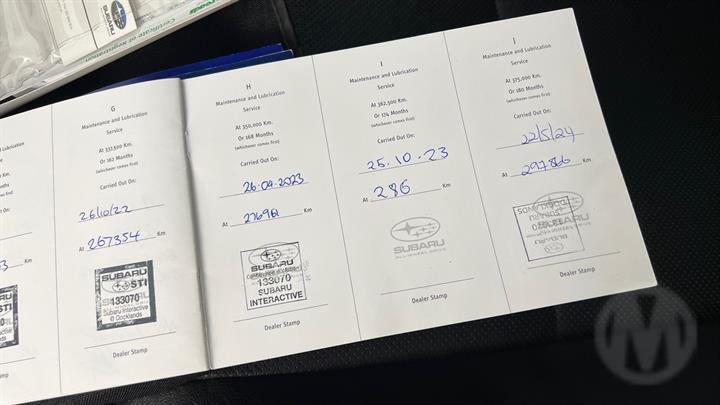 SUBARU
Certificate of Registration
G
Maintenance and Lubrication
Service
At 337,500 Km.
Or 162 Months
(whichever comes first)
Carried Out On:
26/10/22
At 267354 Km
SUBARU
STI
133070
Subaru Interactive
@ Docklands
Dealer Stamp
H
Maintenance and Lubrication
Service
At 350,000 Km.
Or 168 Months
(whichever comes first)
Carried Out On:
26.04.2023
At 276961 Km
133070
SUBARU
INTERACTIVE
Dealer Stamp
I
Maintenance and Lubrication
Service
At 362,500 Km.
Or 174 Months
(whichever comes first)
Carried Out On:
25.10.23
At 286 Km
SUBARU
Dealer Stamp
J
Maintenance and Lubrication
Service
At 375,000 Km.
Or 180 Months
(whichever comes first)
Carried Out On:
22/5/24
At 297866 Km
SUBARU
Dealer Stamp
M